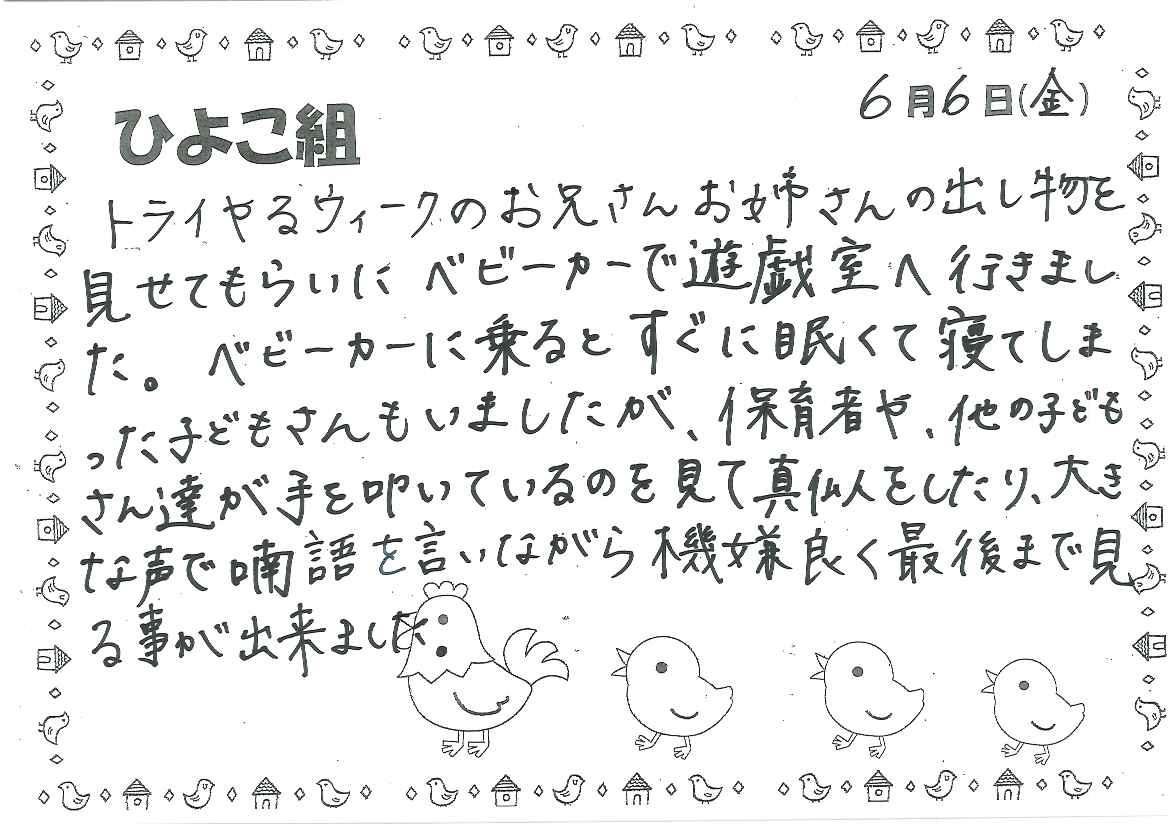 6月6日(金)
ひよこ組
トライやるウィークのお兄さんお姉さんの出し物を
見せてもらいに ベビーカーで遊戯室へ行きまし
た。 ベビーカーに乗るとすぐに眠くて寝てしま
った子どもさんもいましたが、保育者や、他の子ども
さん達が手を叩いているのを見て真似人をしたり、大き
な声で喃語を言いながら機嫌良く最後まで見
る事が出来ました